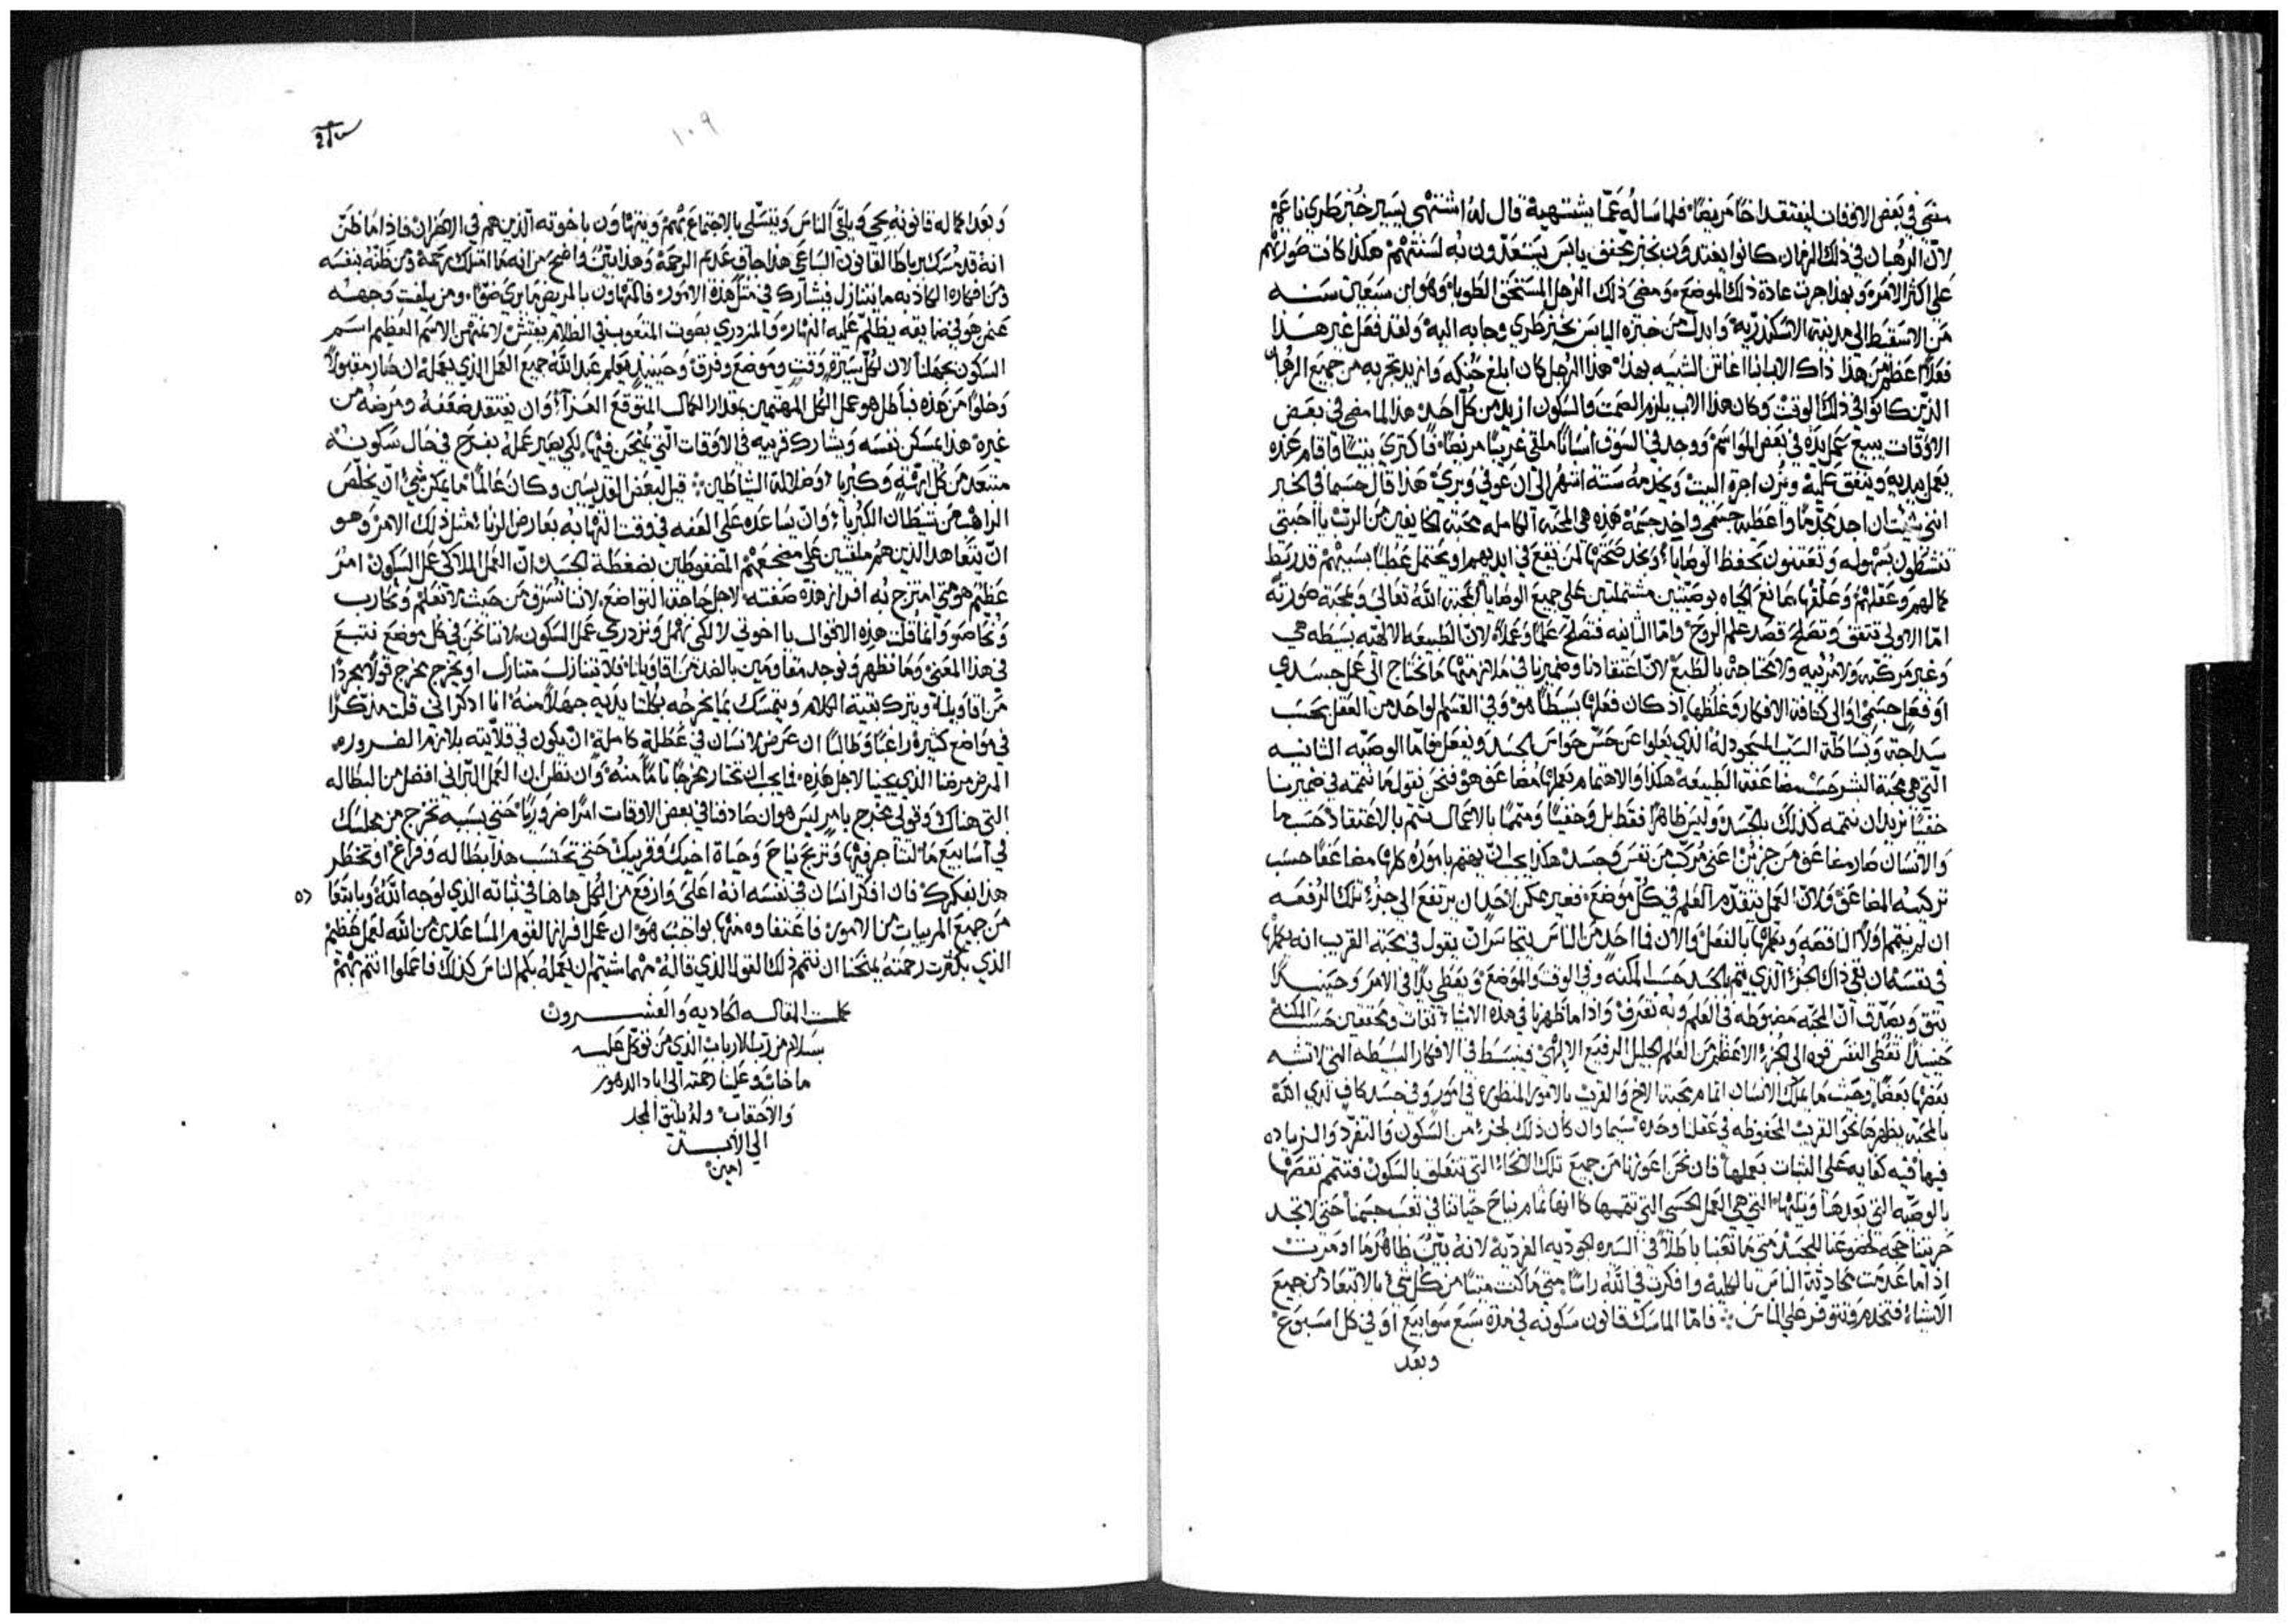 مضى في بعض الاوقات ليفتقد اخًا مريضًا فلما ساله عما يشتهيه قال له اشتهى يسير خبز طري ناعم
لان الرهبان في ذلك الزمان كانوا يغتدون بخبز مجفف يابس يستعدون به لسنتهم هكذا كانت
على اكثر الامر وبهذا جرت عادة ذلك الموضع ومضى ذلك الرجل المستحق الطوبا وهو ابن سبعين سنه
من الاسقيط الى مدينة الاسكندرية وابدل من خبزه اليابس بخبز طري وجا به اليه ولقد فعل غير هذا
فعلاً اعظم من هذا ذاك الاب انبا اغاثن الشبيه بهذا هذا الرجل كان ابلغ حنكه وازيد تجربه من جميع الرهبان
الذين كانوا في ذلك الوقت وكان هذا الاب يلزم الصمت والسكون ازيد من كل احد هذا لما مضى في بعض
الاوقات يبيع عمل يده في بعض المواسم ووجد في السوق انسانًا ملقى غريبًا مريضًا فاكترى بيتًا واقام عنده
يعمل بيديه وينفق عليه ويزن اجرة البيت ويخدمه ستة اشهر الى ان عوفي وبرئ هذا قال حسبما في الخبر
انني شيت ان اجد مجذمًا واعطيه جسمي واخذ جسمه هذه هي المحبه الكامله محبة الخايفين من الرب يا احبتي
ينشطون بسهوله ويعتنون بحفظ الوصايا
امّا الاولى تتفق وتصلح قصد علم الروح وامّا الثانيه فتصلح علمًا وعملاً لان الطبيعه الالهيه بسيطه هي
وغير مركبه ولا مرئيه ولا محتاجه بالطبع لان اعتقادنا وضميرنا في ملازمتها ما يحتاج الى عمل جسدي
او فعل جسمي او الى كثافة الافكار وغلظها اذ كان فعلها بسيطًا هو وفي القسم الواحد من العقل بحسب
سداجة وبساطة السبب المسجود له الذي يعلوا عن حس حواس الجسد ويفعل فامّا الوصيه الثانيه
التي هي محبة البشر حسب مضاعفة الطبيعه هكذا والاهتمام بعملها مضاعف هو فنحن نقول ما نتممه في ضميرنا
خفيًا نريد ان نتممه كذلك بالجسد وليس ظاهرًا فقط بل وخفيًا ومتممًا بالاعمال يتم بالاعتقاد حسبما
والانسان صار مضاعف من جزئين اعنى مركب من نفس وجسد هكذا يجب ان يهتم بامور كلها مضاعفًا حسب
تركيبه المضاعف ولان العمل يتقدم العلم في كل موضع فغير ممكن لاحد ان يرتفع الى جزؤ تلك الرفعه
ان لم يتمم اولًا الناقصه ويعملها بالفعل والان فما احد من الناس يتجاسر ان يقول في محبة القريب انه يعملها
في نفسه ان بقي ذاك الجزؤ الذي يتم بالجسد حسب المكنه وفي الوقت والموضع ويعطى بدًا في الامر وحينيذًا
يثق ويصدق ان المحبه مضبوطه في العلم وبه تعرف واذا ما ظهرنا في هذه الاشياء ثقات ومحققين حسب المكنه
حينيذًا تعطى النفس قوه الى الجزؤ الاعظم من العلم الجليل الرفيع الالهى فينبسط في الافكار البسيطه التي لا تشبه
بعضها بعضًا وحيث ما يملك الانسان اتمام محبة الاخ والقريب بالامور المنظوره في امور وفي جسد كاف لدى الله
بالمحبه يظهرها نحو القريب المحفوظه في عقلنا وحده سيما وان كان ذلك لجزؤ من السكون والتفرد والزياده
فيها فيه كفايه على الثبات بعملها فان نحن اعوزنا من جميع تلك الانحاء التي تتعلق بالسكون فنتمم نقصها
بالوصيه التي بعدها ويليها التي هي العمل الحسى
اذا ما عدمت محادثة الناس بالكليه وافكرت في الله راسًا متى ما كنت ميتًا من كل شي بالابتعاد من جميع
الاشياء فتخدم وتتوفر على الناس ∴ فامّا الماسك قانون سكونه في مدة سبع سوابيع او في كل اسبوع
وبعد
١٠٩
وبعد اكماله قانونه يجي ويلقى الناس ويتسلى بالاجتماع بهم ويتهاون باخوته الذين هم في الاحزان فاذا ما ظن
انه قد مسك برباط القانون الساعى هذا جاف عديم الرحمة وهذا بين واضح من انه ما امتلك رحمة ومن ظنه بنفسه
ومن افكاره الكاذبه ما يتنازل فيشارك في مثل هذه الامور فالمتهاون بالمريض ما يرى ضوًا ومن يلفت وجهه
عن من هو في ضايقه يظلم عليه النهار والمزدري بصوت المتعوب
السكون بجهلنا لان لكل سيرة وقت وموضع وفرق وحينيذ يعلم عند الله جميع العمل الذي يعمله ان صار مقبولاً
وخلوًا من هذه فباطل هو عمل الكل المهتمين بمقدار الكمال المتوقع العزاء وان يفتقد ضعفه ومرضه من
غيره هذا يمسكن نفسه ويشارك قريبه في الاوقات التي يمتحن فيها لكي يصير عمله بفرح في حال سكونه
مبتعد من كل ابهة وكبريا وضلالة الشياطين ∴ قيل لبعض القديسين وكان عالمًا ما يمكن شيٌ ان يخلص
الراهب من شيطان الكبريا وان يساعده على العفه في وقت التهابه بعارض الزنا مثل ذلك الامر وهو
ان يتعاهد الذين هم ملقيين على مضجعهم المضغوطين بضغطة الجسد ان العمل الملاكى عمل السكون امر
عظيم هو متى امتزج به افراز هذه صفته لاجل حاجة التواضع لاننا نسرق من حيث لا نعلم ونحارب
وانما قلت هذه الاقوال يا اخوتي لا لكي نهمل ونزدري عمل السكون لاننا نحن في كل موضع نتبع
في هذا المعنى وما نظهر ونوجد مقاومين بالضد من اقاويلنا فلا يتنازل متنازل او يخرج مخرج قولًا مجردًا
من اقاويله ويترك بقية الكلام ويتمسك بما يخرجه بكلتا يديه جهلًا منه انا اذكر اني قلت مذكرًا
في مواضع كثيرة راغبًا وطالبًا ان عرض لانسان في عطلة كاملة ان يكون في قلايته بلازم الضروره
المرض مرضنا الذي يجينا لاجل هذه فما يجب ان نختار مخرجًا تامًا منه وان نظن ان العمل البراني افضل من البطاله
التي هناك وقولي مخرج بامر ليس هو ان صادفنا في بعض الاوقات امرًا ضروريًا حتى بسببه تخرج من مجلسك
في اسابيع ما لتتاجر فيها وتربح نياح وحياة اخيك وقريبك حتى تحتسب هذا بطاله وفراغ او تخطر
هذا بفكرك فان افتكر انسان في نفسه انه اعلى وارفع من الكل هاهنا في ثباته الذي لوجه الله وبابتعاده
من جميع المرييات من الامور فاعتفاوه منها بواجب هو ان عمل افراز القوم المساعدين من الله لعمل عظيم
الذي بكثرت رحمته يمنحنا ان نتمم ذلك القول الذي قاله مهما شيتم ان يعمله بكم الناس كذلك فاعملوا انتم بهم
كملت المقاله الحاديه والعشرون
بسلام من رب الارباب الذي من توكل عليه
ما خاب وعلينا رحمته الى اباد الدهور
والاحقاب وله يليق المجد
الى الابد
امين